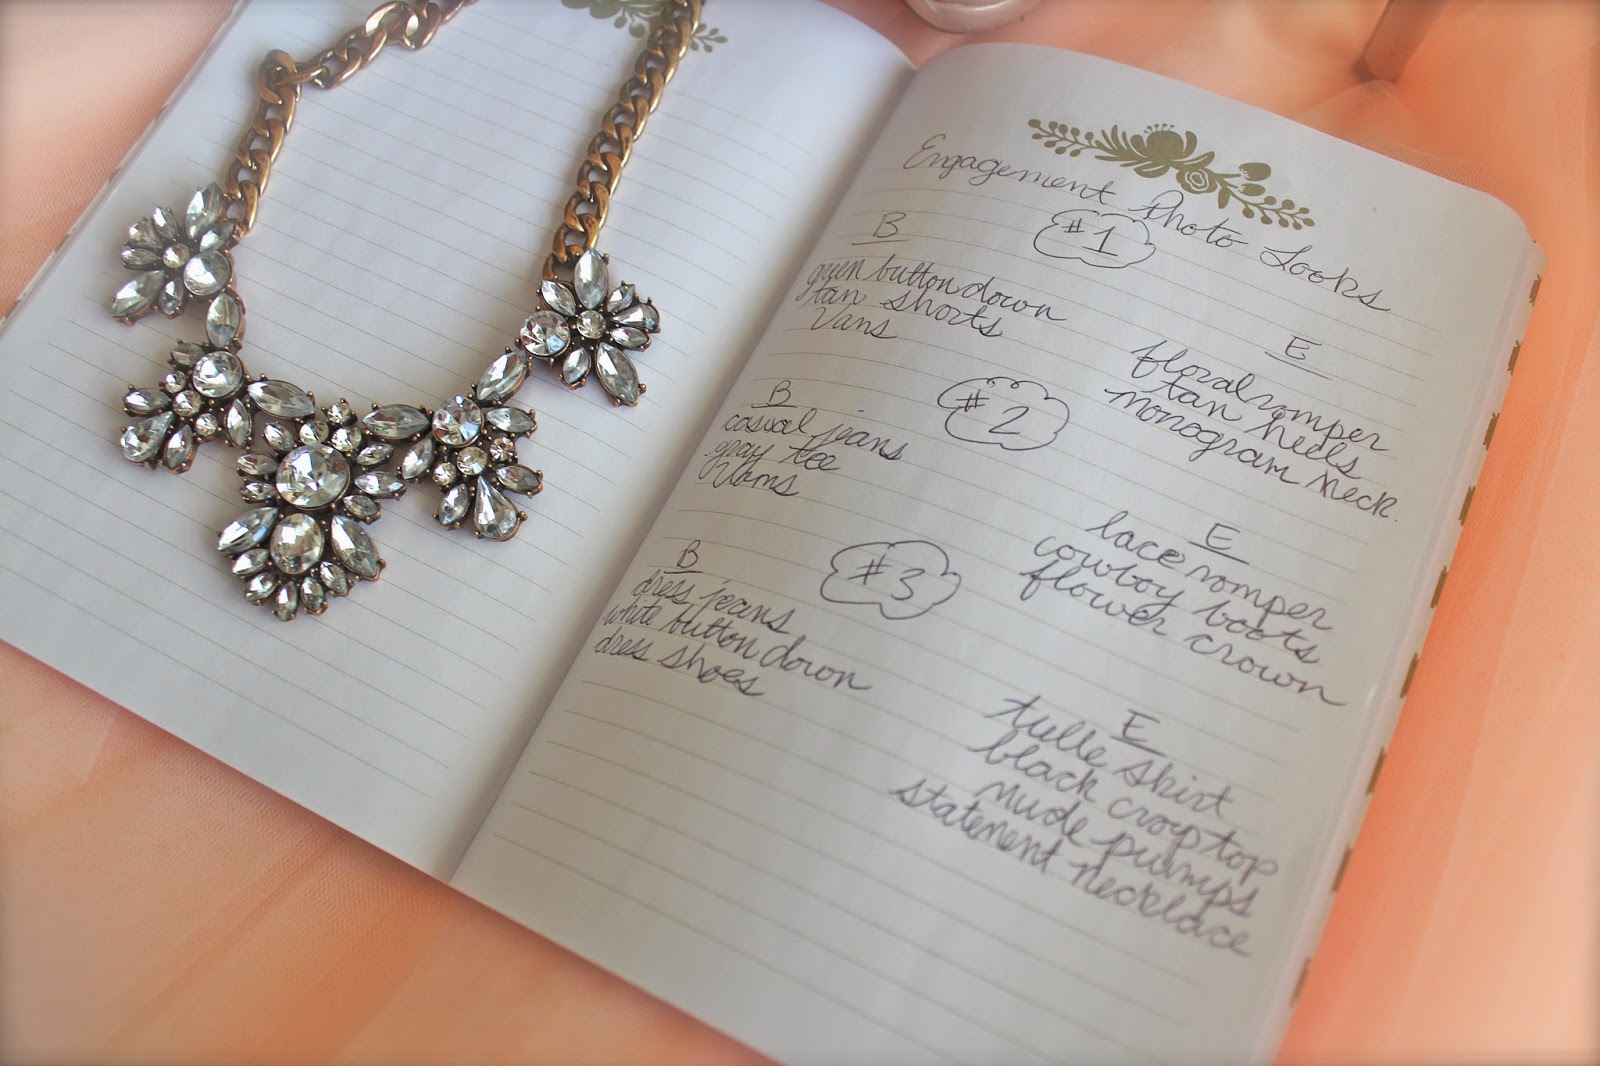 Engagement Photo Looks
#1
B
green button down
tan shorts
Vans
E
floral romper
tan heels
monogram neck.
#2
B
casual jeans
gray tee
Vans
E
lace romper
cowboy boots
flower crown
#3
B
dress jeans
white button down
dress shoes
E
tulle skirt
black crop top
nude pumps
statement necklace